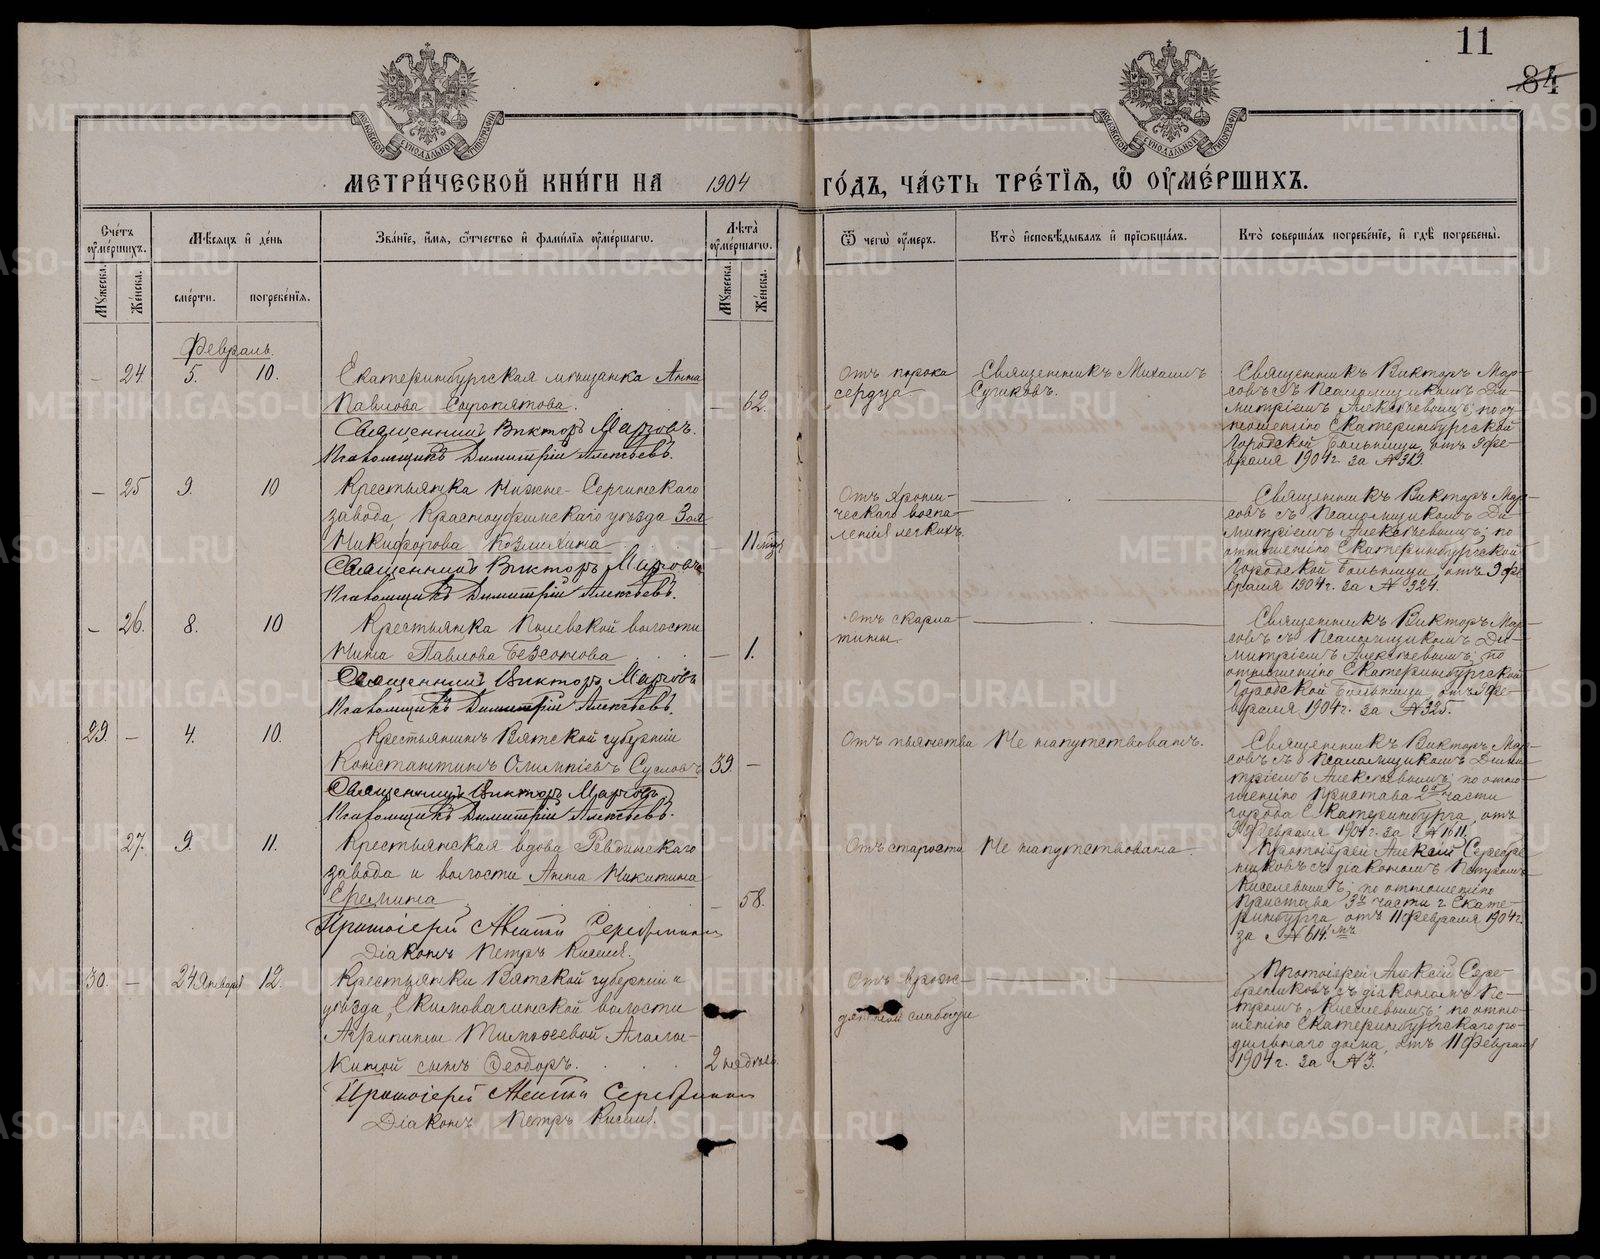 11
84
МОСКОВСКОЙ СѴНОДАЛЬНОЙ ТИПОГРАФІИ
МОСКОВСКОЙ СѴНОДАЛЬНОЙ ТИПОГРАФІИ
МЕТРИ́ЧЕСКОЙ КНИ́ГИ НА 1904 ГО́ДЪ, ЧА́СТЬ ТРЕ́ТІѦ, Ѽ ОУМЕ́РШИХЪ.
Счéтъ оумéршихъ.
Мѣсяцъ и дéнь
Звáнїе, и́мя, ѻ́тчество и фамилїя оумéршагѡ.
Лѣтà оумéршагѡ.
Ѿ чегѡ̀ оу́меръ.
Ктò исповѣ́дывалъ и прїѡбщáлъ.
Ктò совершáлъ погребéнїе, и гдѣ̀ погребены̀.
Мýжеска.
Жéнска.
смéрти.
погребéнїя.
Мýжеска.
Жéнска.
Февраль.
– 24 5. 10.
Екатеринбургская мѣщанка Анна
Павлова Сыропятова. – 62.
Священникъ Викторъ
Псаломщикъ Димитрій Алексѣевъ.
Отъ порока
сердца.
Священникъ Михаилъ
Сучковъ.
Священникъ Викторъ
съ Псаломщикомъ Ди-
митріемъ Алексѣевымъ; по от-
ношенію Екатеринбургской
Городской Больницы, отъ 9 Фе-
враля 1904 г. за №
– 25 9. 10
Крестьянка Нижне-Сергинскаго
завода, Красноуфимскаго уѣзда Зоя
Никифорова Козлихина – 11 мѣс.
Священникъ Викторъ
Псаломщикъ Димитрій Алексѣевъ.
Отъ хрони-
ческаго воспа-
ленія легкихъ.
Священникъ Викторъ
съ Псаломщикомъ Ди-
митріемъ Алексѣевымъ; по
отношенію Екатеринбургской
Городской Больницы, отъ 9 Фе-
враля 1904 г. за № 324.
– 26. 8. 10
Крестьянка Полевской волости
Нина Павлова – 1.
Священникъ Викторъ
Псаломщикъ Димитрій Алексѣевъ.
Отъ скарла-
тины.
Священникъ Викторъ
съ Псаломщикомъ Ди-
митріемъ Алексѣевымъ; по
отношенію Екатеринбургской
Городской Больницы, отъ 9 Фе-
враля 1904 г. за № 325.
29. – 4. 10.
Крестьянинъ Вятской губерніи
Константинъ Олимпіевъ Сусловъ 39. –
Священникъ Викторъ
Псаломщикъ Димитрій Алексѣевъ.
Отъ пьянства
Не напутствованъ.
Священникъ Викторъ
съ Псаломщикомъ Дими-
тріемъ Алексѣевымъ; по отно-
шенію Пристава 2й части
города Екатеринбурга, отъ
9 Февраля 1904 г. за № 1611.
27. 9. 11.
Крестьянская вдова Ревдинскаго
завода и волости Анна Никитина
Еремина – 58.
Протоіерей
Діаконъ Петръ Киселевъ.
Отъ старости
Не напутствована.
Протоіерей Алексій Серебре-
никовъ съ діакономъ Петромъ
Киселевымъ; по отношенію
Пристава 3й части г. Екате-
ринбурга отъ 11 Февраля 1904 г.
за № 614.
30. – 24 Января 12.
Крестьянки Вятской губерніи и
уѣзда, волости
Агрипины
сынъ Ѳеодоръ. 2 недѣль.
Протоіерей
Діаконъ Петръ Киселевъ.
Отъ врож-
денной слабости
Протоіерей Алексій Сере-
брениковъ съ діакономъ Пе-
тромъ Киселевымъ; по отно-
шенію Екатеринбургскаго ро-
дильнаго дома, отъ 11 Февраля
1904 г. за № 3.
METRIKI.GASO-URAL.RU